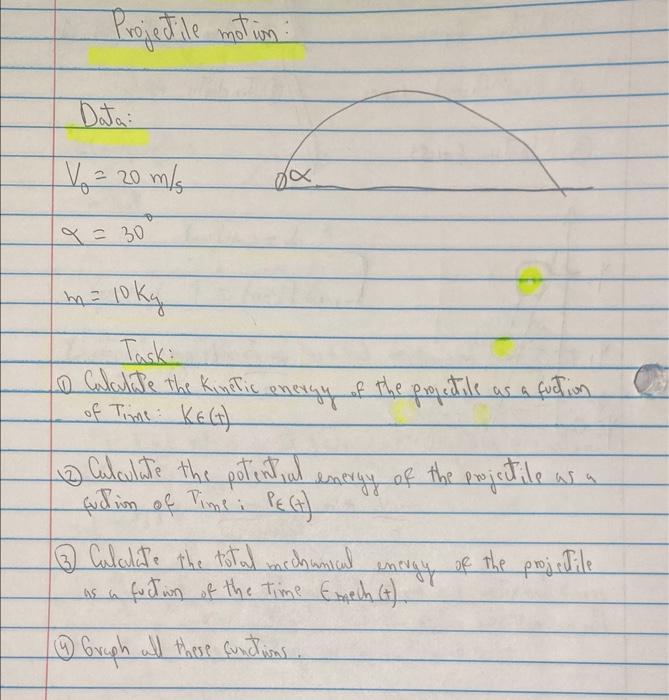 Projectile motion:
Data:
V₀ = 20 m/s
α
α = 30°
m = 10 Kg
Task:
① Calculate the Kinetic energy of the projectile as a fuction
of Time: KE(t)
② Calculate the potential energy of the projectile as a
fuction of Time: PE(t)
③ Calculate the total mechanical energy of the projectile
as a fuction of the Time Emech (t).
④ Graph all these functions.